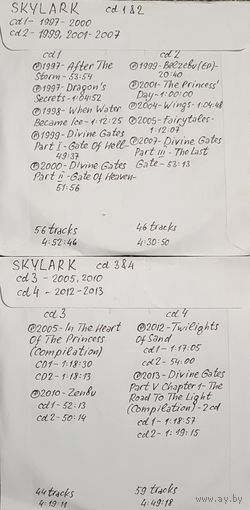 SKYLARK cd 1&2
cd1 - 1997-2000
cd2 - 1999, 2001-2007
cd1
℗1997-After The
Storm-53:54
℗1997-Dragon's
Secrets-1:04:52
℗1998-When Water
Became Ice-1:12:25
℗1999-Divine Gates
Part I-Gate Of Hell-
49:37
℗2000-Divine Gates
Part II-Gate Of Heaven-
51:56
56 tracks
4:52:46
cd 2
℗1999-Belzebu (EP)-
20:40
℗2001-The Princess'
Day-1:00:00
℗2004-Wings-1:04:48
℗2005-Fairytales-
1:12:07
℗2007-Divine Gates
Part III-The Last
Gate-53:13
46 tracks
4:30:50
SKYLARK cd 3&4
cd3 - 2005, 2010
cd4 - 2012-2013
cd 3
℗2005-In The Heart
Of The Princess
(Compilation)
CD1-1:18:30
CD2-1:18:13
℗2010-Zenbu
cd1-52:13
cd2-50:14
44 tracks
4:19:11
cd 4
℗2012-Twilights
Of Sand
cd1-1:17:05
cd2-54:00
℗2013-Divine Gates
Part V Chapter 1-The
Road To The Light
(Compilation)-2cd
cd1-1:18:57
cd2-1:19:15
59 tracks
4:49:18
www.ay.by